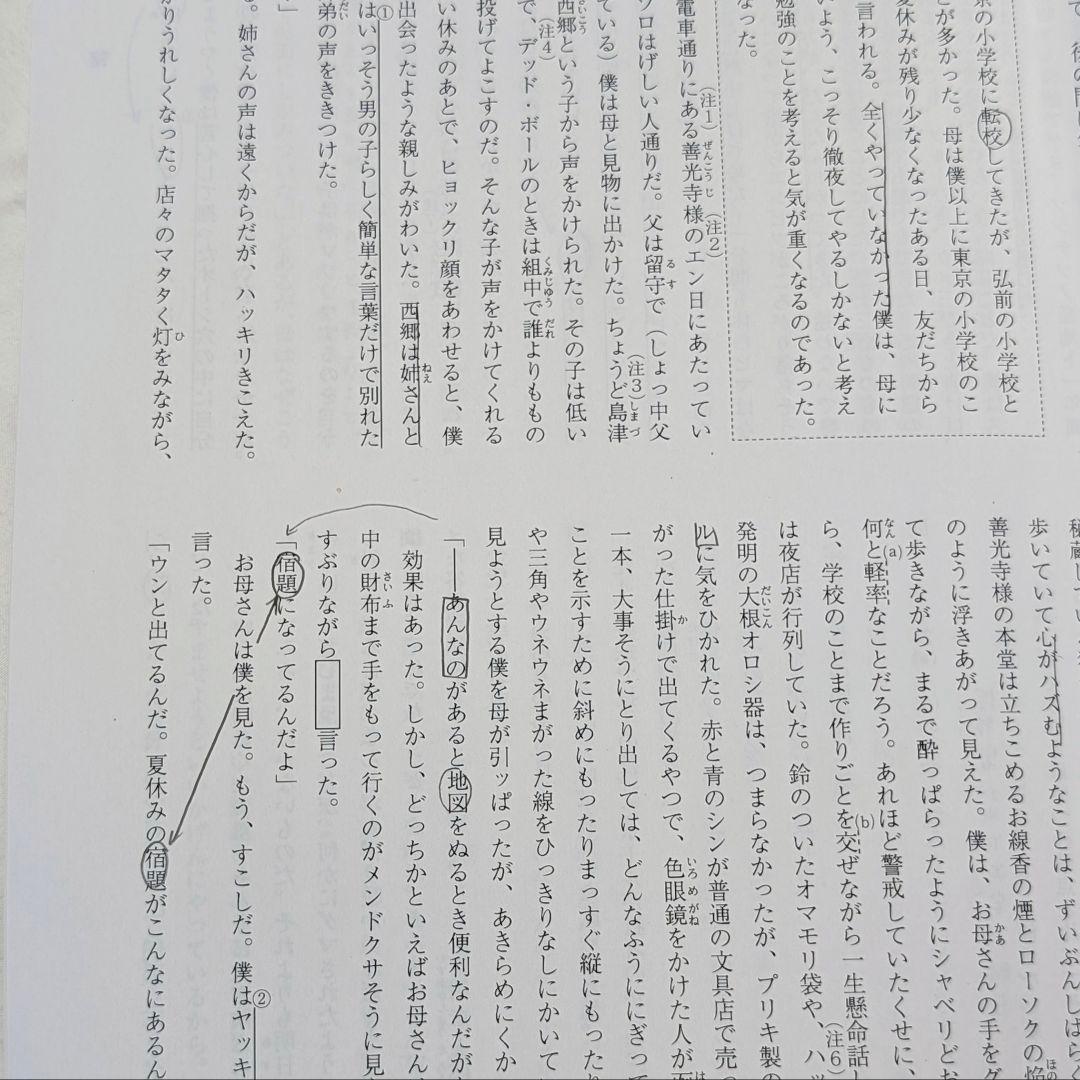 京の小学校に転校してきたが、弘前の小学校と
とが多かった。母は僕以上に東京の小学校のこ
夏休みが残り少なくなったある日、友だちから
言われる。全くやっていなかった僕は、母に
いよう、こっそり徹夜してやるしかないと考え
勉強のことを考えると気が重くなるのであった。
なった。
電車通りにある善光寺様のエン日にあたってい
ソロはげしい人通りだ。父は留守で(しょっ中父
ている)僕は母と見物に出かけた。ちょうど島津
西郷という子から声をかけられた。その子は低い
で、デッド・ボールのときは組中で誰よりももの
投げてよこすのだ。そんな子が声をかけてくれる
い休みのあとで、ヒョックリ顔をあわせると、僕
出会ったような親しみがわいた。西郷は姉さんと
はいっそう男の子らしく簡単な言葉だけで別れた
弟の声をききつけた。
」
る。姉さんの声は遠くからだが、ハッキリきこえた。
がりうれしくなった。店々のマタタく灯をみながら、
歩いていて心がハズむようなことは、ずいぶんしばらく
善光寺様の本堂は立ちこめるお線香の煙とローソクの焔
のように浮きあがって見えた。僕は、お母さんの手をグ
て歩きながら、まるで酔っぱらったようにシャベリどお
何と軽率なことだろう。あれほど警戒していたくせに、
ら、学校のことまで作りごとを交ぜながら一生懸命話し
は夜店が行列していた。鈴のついたオマモリ袋や、ハッ
発明の大根オロシ器は、つまらなかったが、ブリキ製の
ルに気をひかれた。赤と青のシンが普通の文具店で売っ
がった仕掛けで出てくるやつで、色眼鏡をかけた人が
一本、大事そうにとり出しては、どんなふうににぎって
ことを示すために斜めにもったりまっすぐ縦にもったり
や三角やウネウネまがった線をひっきりなしにかいて
見ようとする僕を母が引ッぱったが、あきらめにくか
「――あんなのがあると地図をぬるとき便利なんだが
効果はあった。しかし、どっちかといえばお母さん
中の財布まで手をもって行くのがメンドクサそうに見
すぶりながら　　言った。
「宿題になってるんだよ」
お母さんは僕を見た。もう、すこしだ。僕はヤッキ
言った。
「ウンと出てるんだ。夏休みの宿題がこんなにあるん